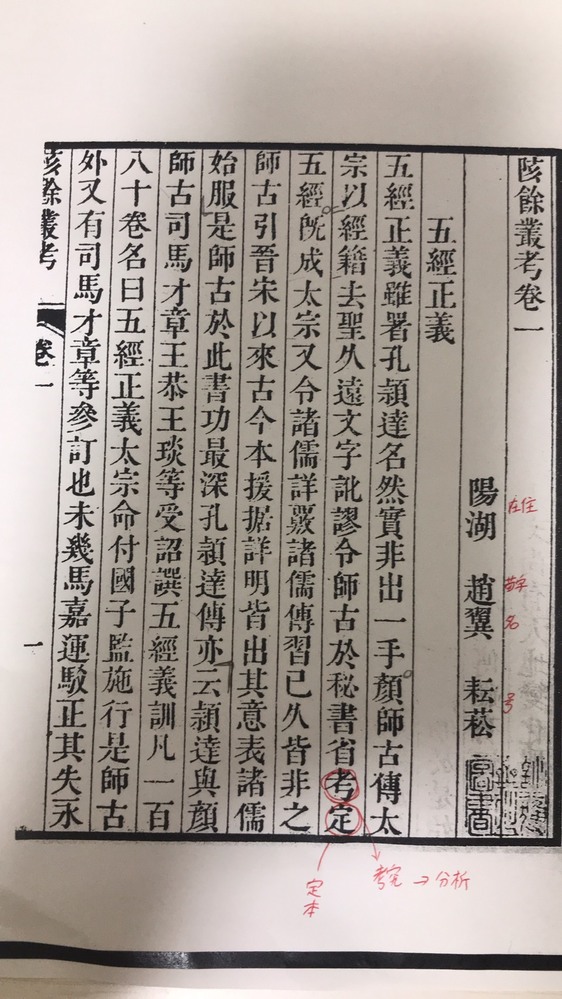 陔餘叢考卷一
陽湖 趙翼 耘菘
五經正義
五經正義雖署孔頴達名然實非出一手顏師古傳太
宗以經籍去聖久遠文字訛謬令師古於秘書省考定
五經既成太宗又令諸儒詳覈諸儒傳習已久皆非之
師古引晉宋以來古今本援據詳明皆出其意表諸儒
始服是師古於此書功最深孔頴達傳亦云頴達與顏
師古司馬才章王恭王琰等受詔譔五經義訓凡一百
八十卷名曰五經正義太宗命付國子監施行是師古
外又有司馬才章等參訂也未幾馬嘉運駁正其失永
陔餘叢考 卷一
一
在住
苗字
名
号
考究→分析
定本